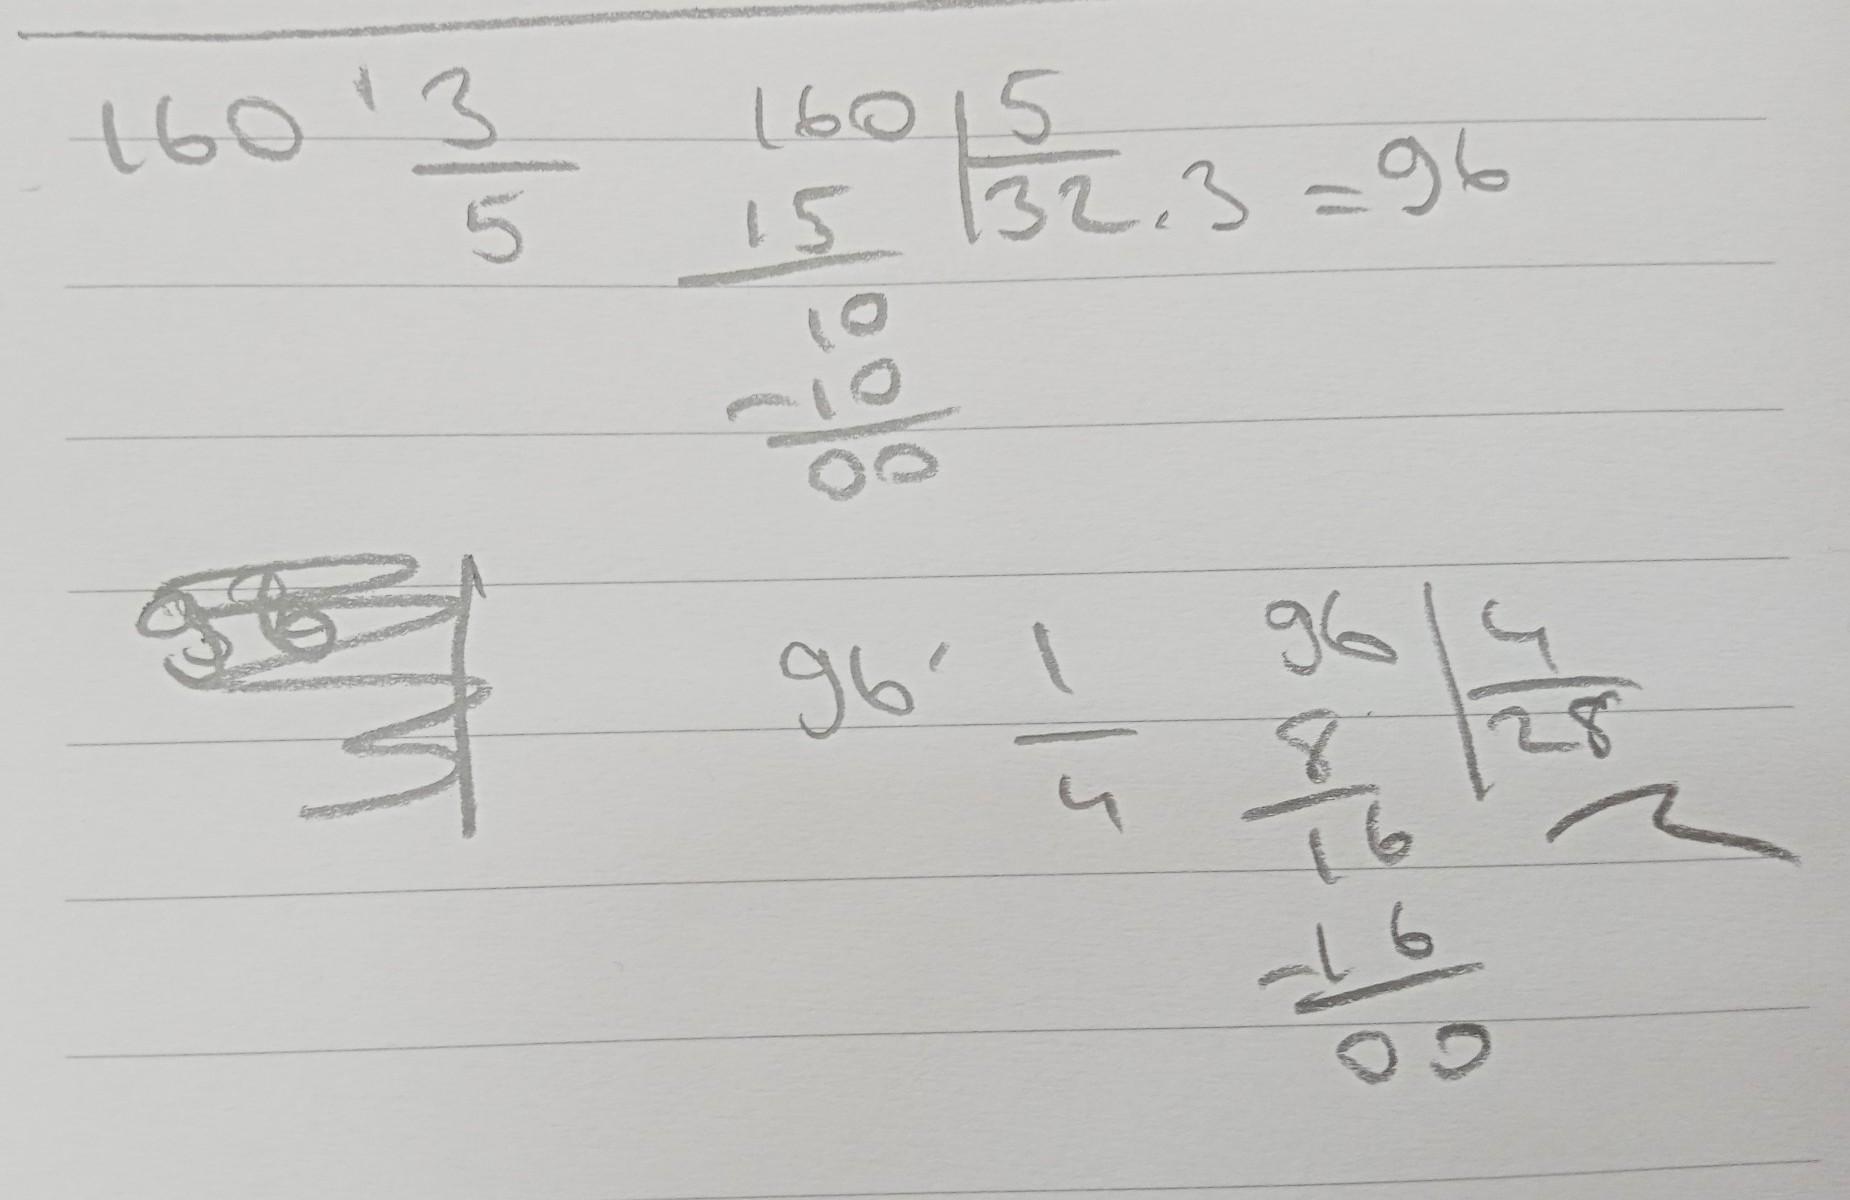 160 ' 3/5 160 | 5
15 32 . 3 = 96
10
-10
00
96 ' 1/4 96 | 4
8 28
16
-16
00